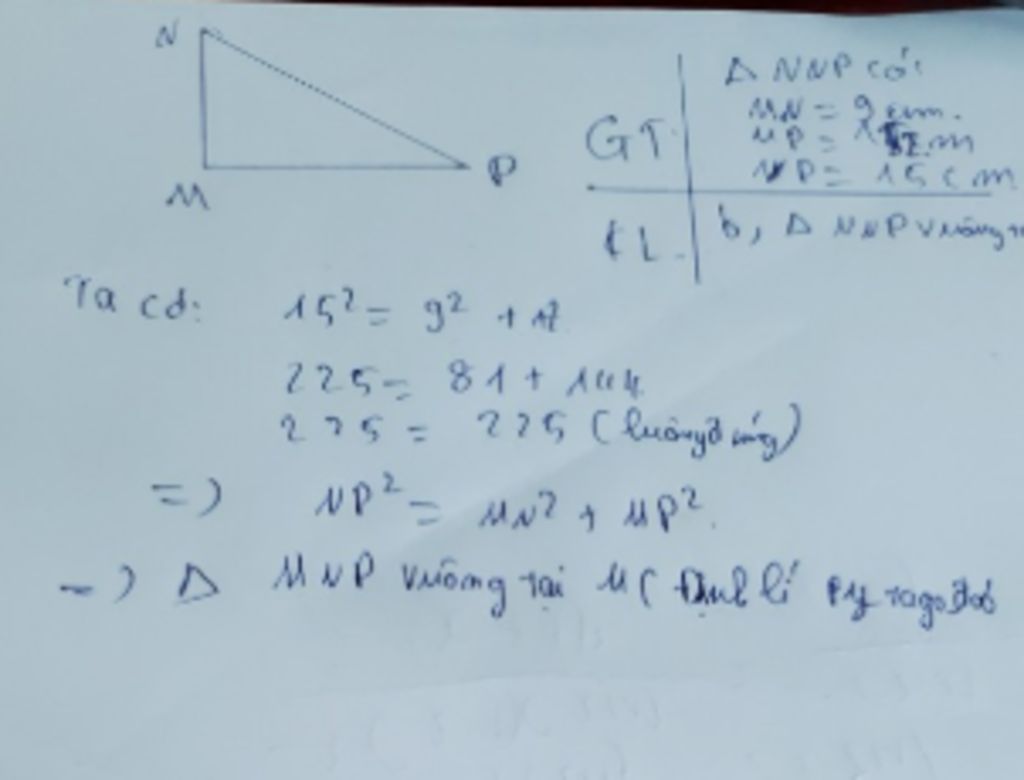 N
M
P
GT
Δ MNP có:
MN = 9 cm.
MP = 12 cm
NP = 15 cm
KL
b, Δ MNP vuông
Ta có: 15² = 9² + 12
225 = 81 + 144
225 = 225 (luôn đúng)
=) NP² = MN² + MP².
=) Δ MNP vuông tại M ( Định lí Pytago đảo